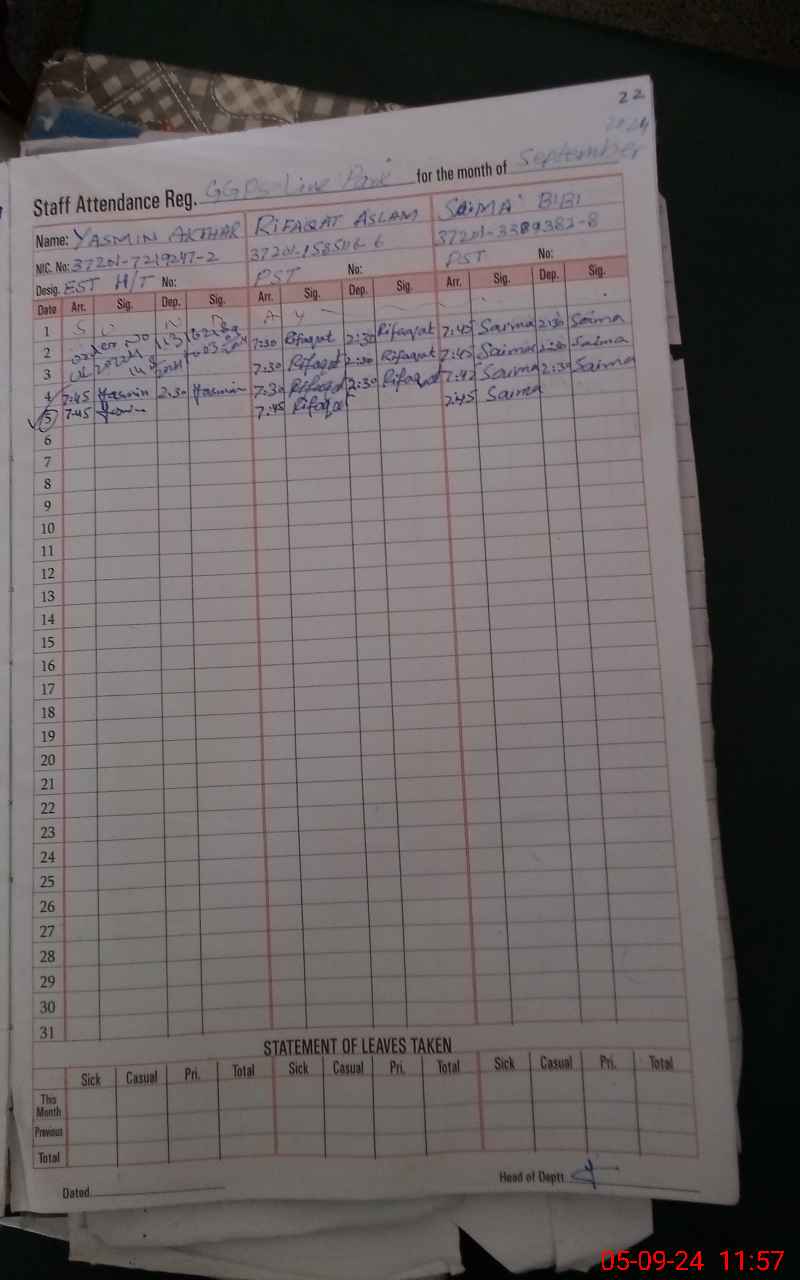 22
2024
Staff Attendance Reg. GGPS Line Park for the month of September
Name: YASMIN AKTHAR RIFAQAT ASLAM SAIMA BIBI
NIC. No: 37201-7219247-2 37201-158516-6 37201-3389382-8
Desig. EST H/T No: PST No: PST No:
Date Arr. Sig. Dep. Sig. Arr. Sig. Dep. Sig. Arr. Sig. Dep. Sig.
1 S U N D A Y
2 7:30 Rifaqat 2:30 Rifaqat 7:45 Saima 2:30 Saima
3 7:30 Rifaqat 2:30 Rifaqat 7:45 Saima 2:30 Saima
4 7:45 Yasmin 2:30 Yasmin 7:30 Rifaqat 2:30 Rifaqat 7:42 Saima 2:30 Saima
5 7:45 7:45 Rifaqat 7:45 Saima
6
7
8
9
10
11
12
13
14
15
16
17
18
19
20
21
22
23
24
25
26
27
28
29
30
31
STATEMENT OF LEAVES TAKEN
Sick Casual Pri. Total Sick Casual Pri. Total Sick Casual Pri. Total
This Month
Previous
Total
Dated
Head of Deptt:
05-09-24 11:57